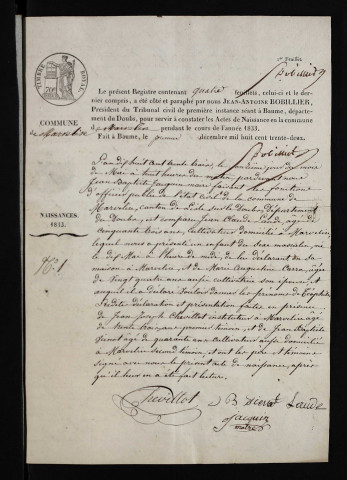 1er feuillet
Le présent Registre contenant quatre feuillets, celui-ci et le dernier
compris, a été coté et paraphé par nous JEAN-ANTOINE BOBILLIER,
Président du Tribunal civil de première instance séant à Baume, département
du Doubs, pour servir à constater les Actes de Naissance en la commune
d pendant le cours de l'année 1833.
Fait à Baume, le premier décembre mil huit cent trente-deux.
Bobillier
TIMBRE ROYAL
COMMUNE
de Marvelise
NAISSANCES.
1833.
N.º 1
L'an dix huit cent trente trois, le jour du mois
de Mai à huit heures du matin, pardevant nous
Jean Baptiste Jacquin maire faisant les fonctions
d'officier public de l'état civil de la commune de
Marvelise, canton de l'Isle sur le Doubs, département
du Doubs, est comparu Jean Claude Laude, âgé de
cinquante trois ans, cultivateur domicilié à Marvelise,
lequel nous a présenté un enfant du sexe masculin, né
le dix Mai à heure de midi, de lui déclarant en sa
maison à Marvelise, et de Marie Augustine Carra, âgée
de vingt quatre ans, cultivatrice son épouse, et
auquel il a déclaré vouloir donner le prénom de Théophile
les dites déclaration et présentation faites en présence
de Jean Joseph Chevillot instituteur à Marvelise âgé
de trente trois ans, premier témoin, et de Jean Baptiste
âgé de quarante ans cultivateur aussi domicilié
à Marvelise second témoin, et ont les père et témoins
signé avec nous le présent acte de naissance, après
qu'il leur en a été fait lecture.
Chevillot Laude
Jacquin
maire